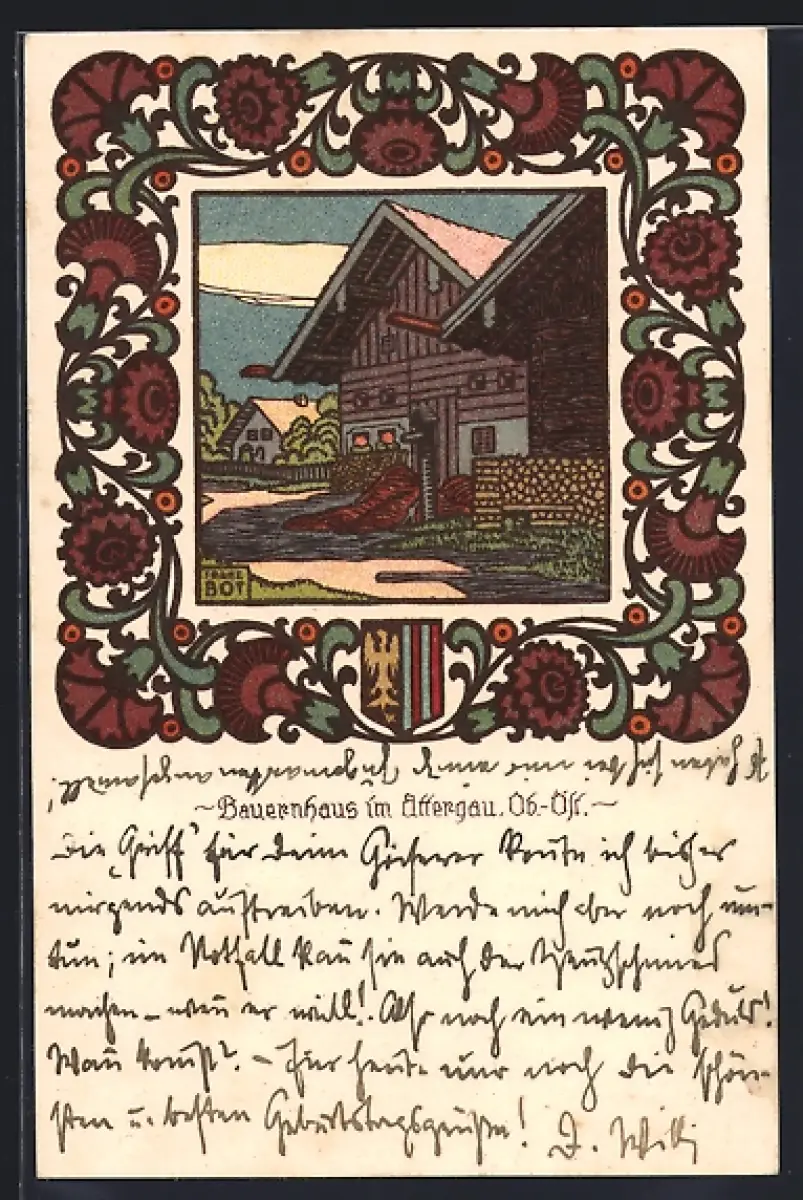 FRANZ
BOT
~Bauernhaus im Attergau. Ob.-Öst.~
Die „Griff“ für Deine konnte ich bisher
nirgends auftreiben. Werde mich aber noch um-
tun; im Notfall kan̄ sie auch der
machen – wen̄ er will! Also noch ein wenig Geduld!
Wan̄ kom̄st? – Für heute nur noch die schön-
sten u. besten Geburtstagsgrüße! Willi